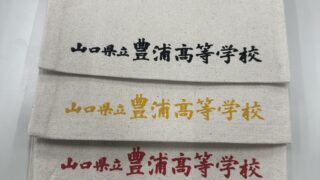 山口県立豊浦高等学校
山口県立豊浦高等学校
山口県立豊浦高等学校